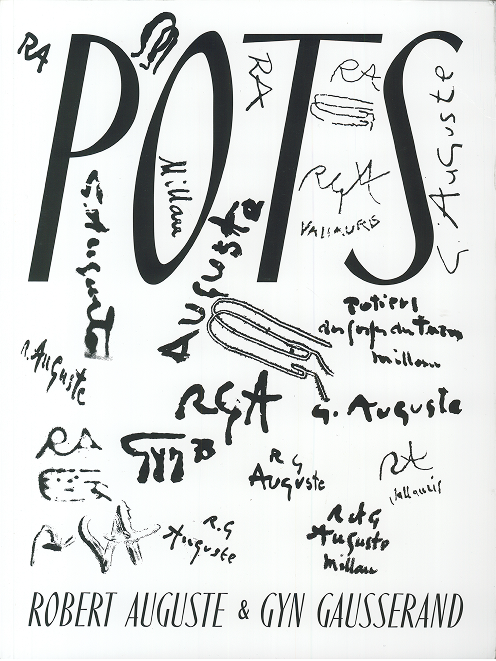 POTS
RA
RA
RA
G. AuGuste
Millau
RGA
VALLAURIS
G. Auguste
Auguste
Potiers
des Gorges du Tarn
Millau
R. Auguste
RGA
G. Auguste
RA
Gyn
R G
Auguste
RA
Vallauris
R.G
Auguste
R et G
Auguste
Millau
ROBERT AUGUSTE & GYN GAUSSERAND